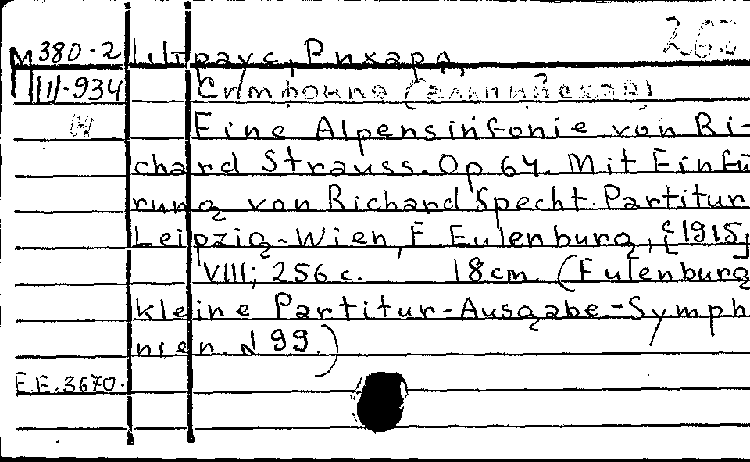 М380-2 Штраус, Рихард.
III-934 Симфония (альпийская)
Н Eine Alpensinfonie von Ri-
chard Strauss. Op 64. Mit Einfü
rung von Richard Specht. Partitur
Leipzig-Wien, E Eulenburg, [1915]
VIII; 256 с. 18cm (Eulenburg
kleine Partitur-Ausgabe-Symph
nien. N 99.)
E.E.3670.